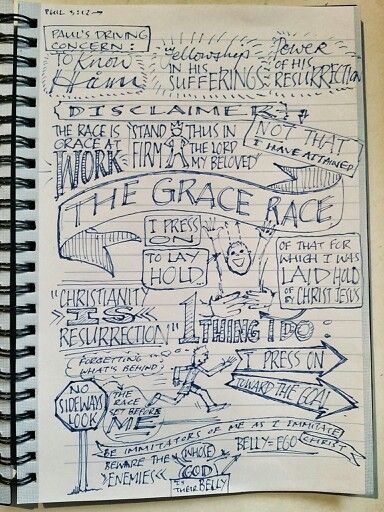 PHIL 3:12→
PAUL'S DRIVING
CONCERN:
TO KNOW
HIM
Fellowship
IN HIS
SUFFERINGS
Power
OF HIS
RESURRECTION
DISCLAIMER
THE RACE IS
GRACE AT
WORK
"STAND
FIRM
THUS IN
THE LORD
MY BELOVED"
NOT THAT
I HAVE ATTAINED
THE GRACE RACE
I PRESS
ON
TO LAY
HOLD
OF THAT FOR
WHICH I WAS
LAID HOLD
OF BY CHRIST JESUS
"CHRISTIANITY
IS
RESURRECTION"
1 THING I DO:
(FORGETTING
WHAT'S BEHIND)
I PRESS ON
TOWARD THE GOAL
NO
SIDEWAYS
LOOK
THE
RACE
SET BEFORE
ME
BE IMMITATORS OF ME AS I IMMITATE
CHRIST
BELLY = EGO
BEWARE THE
>>ENEMIES<<
WHOSE
GOD
IS
THEIR BELLY